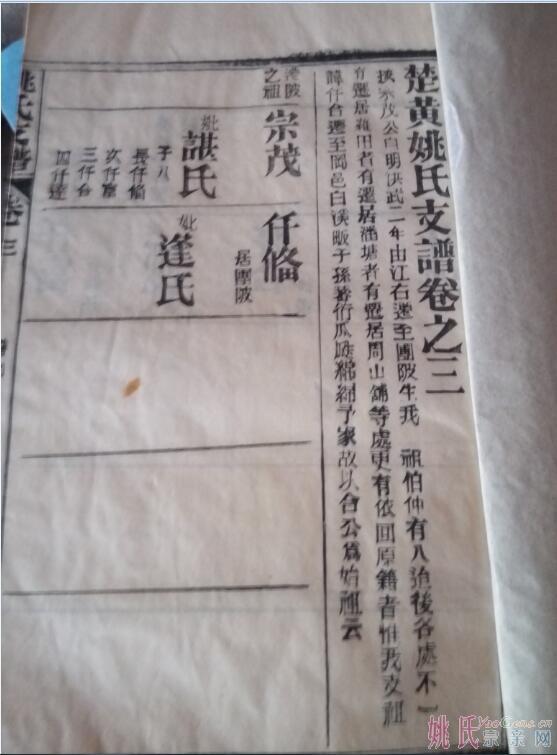 楚黄姚氏支譜卷之三
按宗茂公自明洪武二年由江右遷至團陂生我 祖伯仲有八迨後各處不一
有遷居羅田者有遷居潘塘者有遷居周山舖等處更有依回原籍者惟我支祖
諱仟台遷至岡邑白溪畈子孫蕃衍瓜瓞綿綿予家故以台公爲始祖云
陂
之祖
宗茂
妣諶氏
子八
長仟脩
次仟富
三仟台
四仟達
仟脩
居團陂
妣逢氏
姚氏支譜 卷三
姚氏宗親网
YaoGens.cn